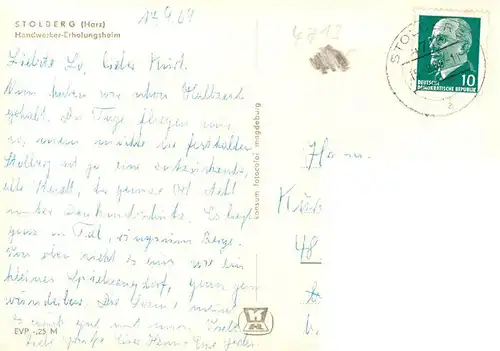 STOLBERG (Harz)
Handwerker-Erholungsheim
17.9.64
4713
Liebste Lo, lieber Kurt.
Nun haben wir schon Halbzeit
gehabt. Die Tage fliegen nur
so, man möchte sie festhalten
Stolberg ist ja eine entzückende,
alte Stadt, der ganze Ort steht
unter Denkmalschutz. Es liegt
ganz im Tal, ringsum Berge.
Von oben sieht es aus wie ein
kleines Spielzeugdorf, ganz
wunderbar. Die Sonne
es auch gut und
liebe Grüße Eure
EVP -,25 M
konsum fotocolor magdeburg
STOLBERG
DEUTSCHE
DEMOKRATISCHE REPUBLIK
10
a
Herrn
48